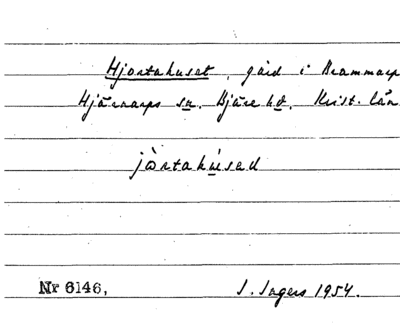 Hjortahuset, gård i Brammarp
Hjärnarps sn. Bjäre hd. Krist. län
jòrtahùsad
Nr 6146,
J. Ingers 1954.